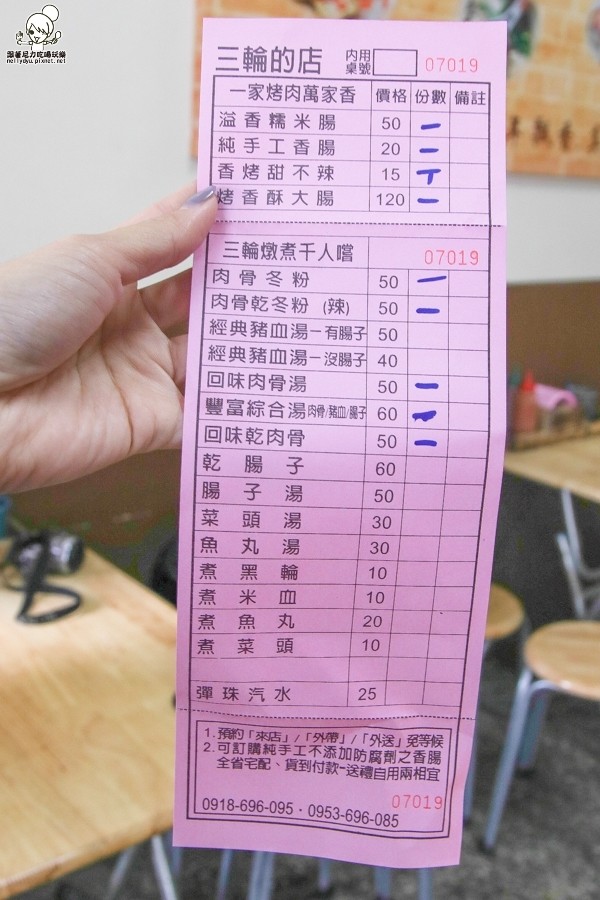 跟著尼力吃喝玩樂
nellydyu.pixnet.net
三輪的店 內用桌號 07019
一家烤肉萬家香 價格 份數 備註
溢香糯米腸 50 一
純手工香腸 20 一
香烤甜不辣 15 T
烤香酥大腸 120 一
三輪燉煮千人嚐 07019
肉骨冬粉 50 一
肉骨乾冬粉(辣) 50 一
經典豬血湯-有腸子 50
經典豬血湯-沒腸子 40
回味肉骨湯 50 一
豐富綜合湯肉骨/豬血/腸子 60 一
回味乾肉骨 50 一
乾腸子 60
腸子湯 50
菜頭湯 30
魚丸湯 30
煮黑輪 10
煮米血 10
煮魚丸 20
煮菜頭 10
彈珠汽水 25
1.預約「來店」/「外帶」/「外送」免等候
2.可訂購純手工不添加防腐劑之香腸
全省宅配、貨到付款-送禮自用兩相宜
07019
0918-696-095・0953-696-085